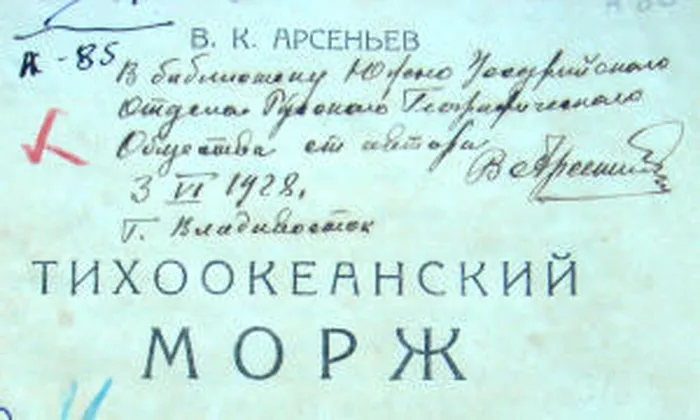 А-85
В. К. АРСЕНЬЕВ
В библиотеку Южно Уссурийского
Отдела Русского Географического
Общества от автора
В Арсеньев
3 VI 1928.
г. Владивосток
ТИХООКЕАНСКИЙ
МОРЖ